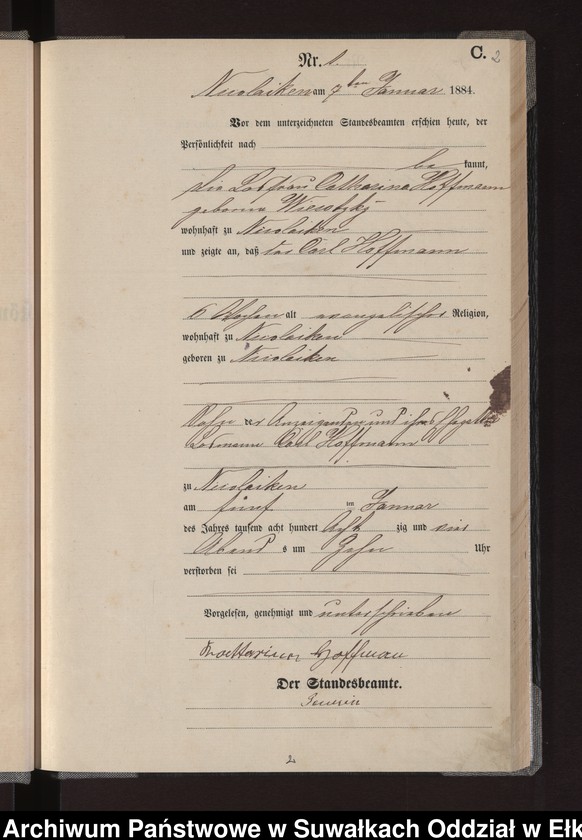 C. 2
Nr. 1.
Nicolaiken am 7ten Januar 1884.
Vor dem unterzeichneten Standesbeamten erschien heute, der
Persönlichkeit nach
be kannt,
die Losfrau Catharina Hoffmann
geborne
wohnhaft zu Nicolaiken
und zeigte an, daß der Carl Hoffmann
6 Wochen alt evangelischer Religion,
wohnhaft zu Nicolaiken
geboren zu Nicolaiken
Sohn der Anzeigenden und ihres Ehegatten
Losmann Carl Hoffmann
zu Nicolaiken
am fünf im Januar
des Jahres tausend acht hundert acht zig und vier
Abend s um Zehn Uhr
verstorben sei
Vorgelesen, genehmigt und unterschrieben
Hoffman
Der Standesbeamte.
2
Archiwum Państwowe w Suwałkach Oddział w Ełk